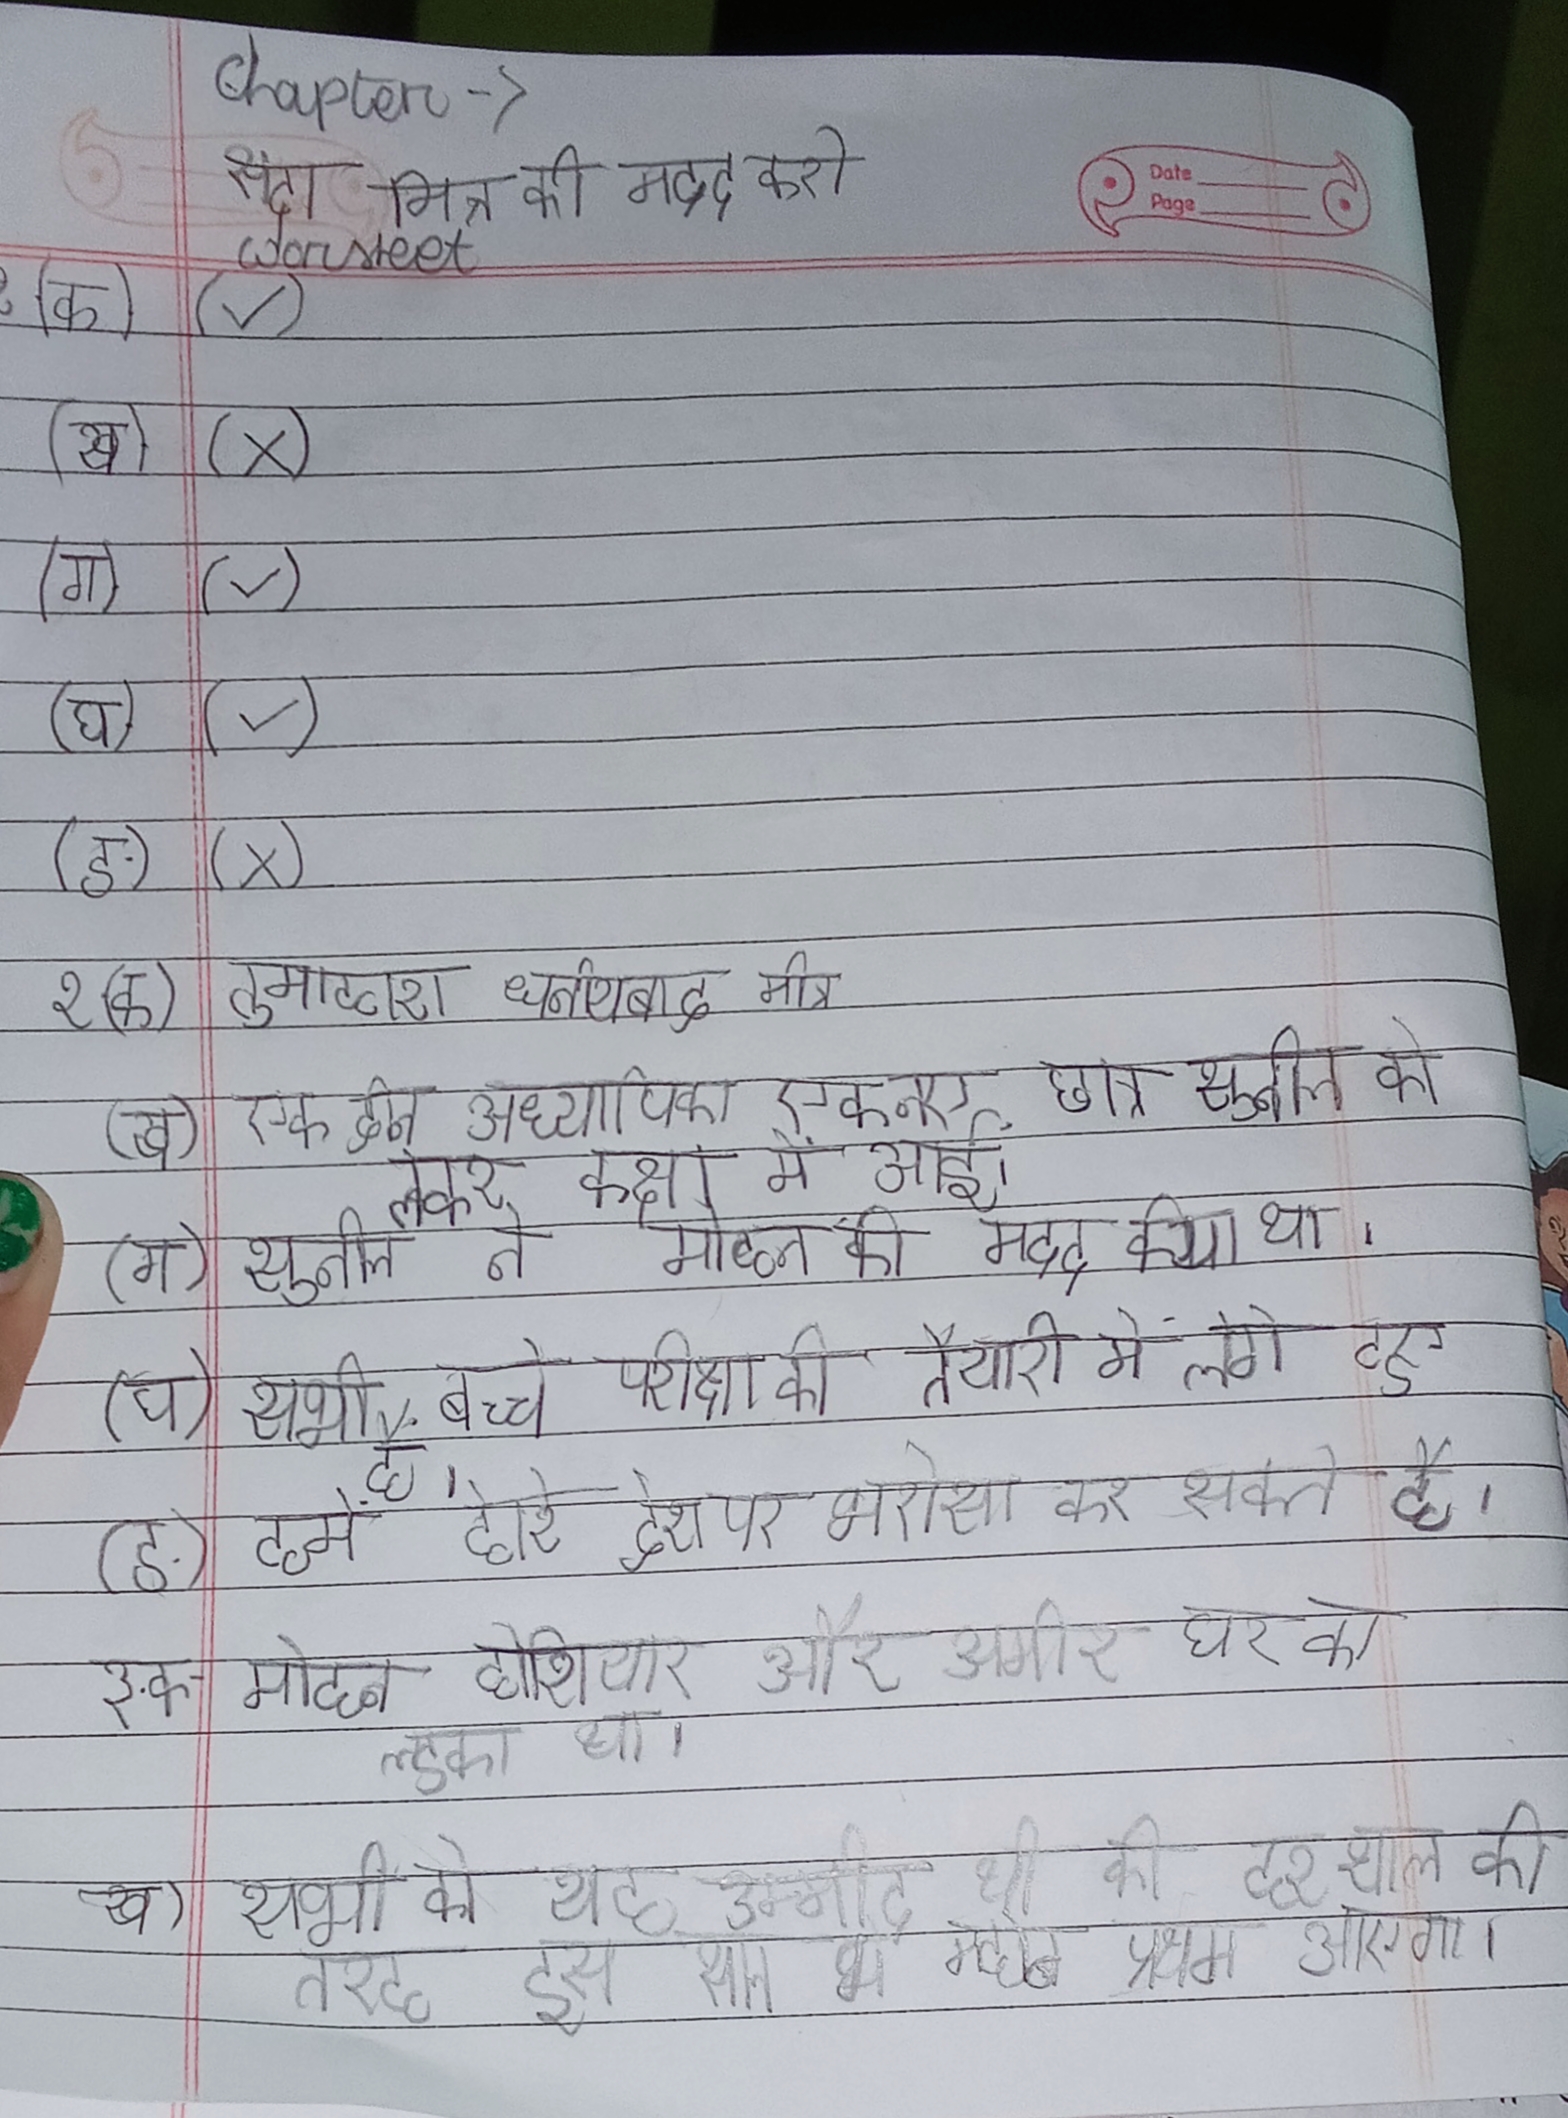 Chapter ->
सदा मित्र की मदद करो
Date
Page
worsteet
(क) (✓)
(ख) (X)
(ग) (✓)
(घ) (✓)
(ङ) (X)
२(क) तुमाह्वारा धनीयबाद मीत्र
(ख) एक दीन अध्यापिका एक नए छात्र सुनील को
लेकर कक्षा में आई।
(ग) सुनील ने मोहन की मदद कीया था।
(घ) सभी बच्चे परीक्षा की तैयारी में लगे हुए
है।
(ङ) हमें होरे देश पर भरोसा कर सकते है।
३.क मोहन होशियार और अमीर घर का
लडका था।
ख) सभी को यह उम्मीद थी की हर साल की
तरह इस साल भी मोहन प्रथम आएगा।